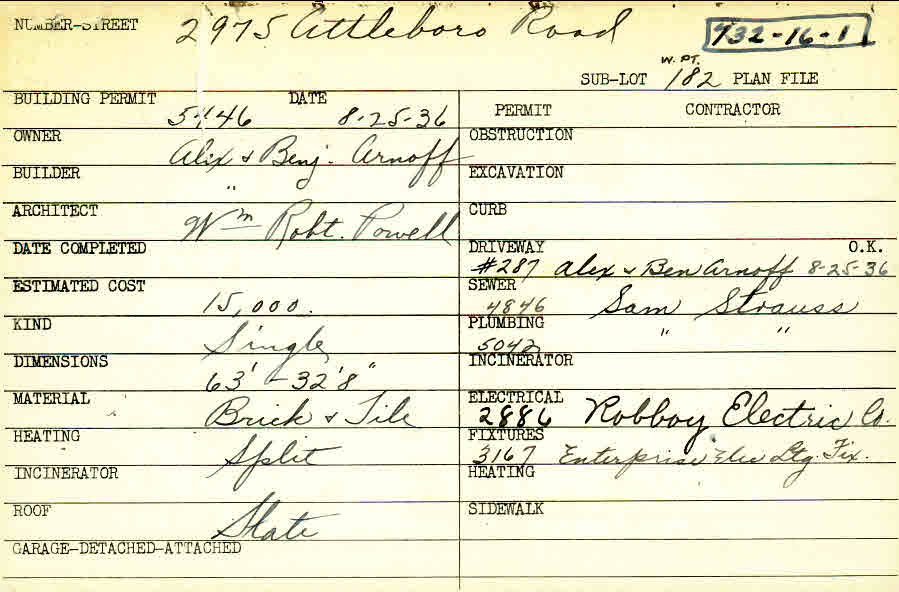 NUMBER-STREET 2975 Attleboro Road 732-16-1
W. PT.
SUB-LOT 182 PLAN FILE
BUILDING PERMIT DATE
5446 8-25-36
OWNER Alex & Benj. Arnoff
BUILDER "
ARCHITECT Wm Robt. Powell
DATE COMPLETED
ESTIMATED COST 15,000.
KIND Single
DIMENSIONS 63' - 32'8"
MATERIAL Brick & Tile
HEATING Split
INCINERATOR
ROOF Slate
GARAGE-DETACHED-ATTACHED
PERMIT CONTRACTOR
OBSTRUCTION
EXCAVATION
CURB
DRIVEWAY O.K.
#287 Alex & Ben Arnoff 8-25-36
SEWER
4846 Sam Strauss
PLUMBING " "
5042
INCINERATOR
ELECTRICAL
2886 Robboy Electric Co.
FIXTURES
3167 Enterprise Elec Ltg. Fix.
HEATING
SIDEWALK